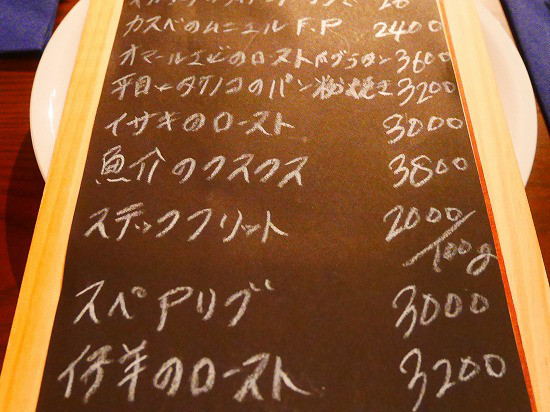 カスベのムニエル F.P 2400
オマールエビのロースト 3600
平目とタケノコのパン粉焼き 3200
イサキのロースト 3000
魚介のクスクス 3800
ステックフリット 2000/100g
スペアリブ 3000
仔羊のロースト 3200